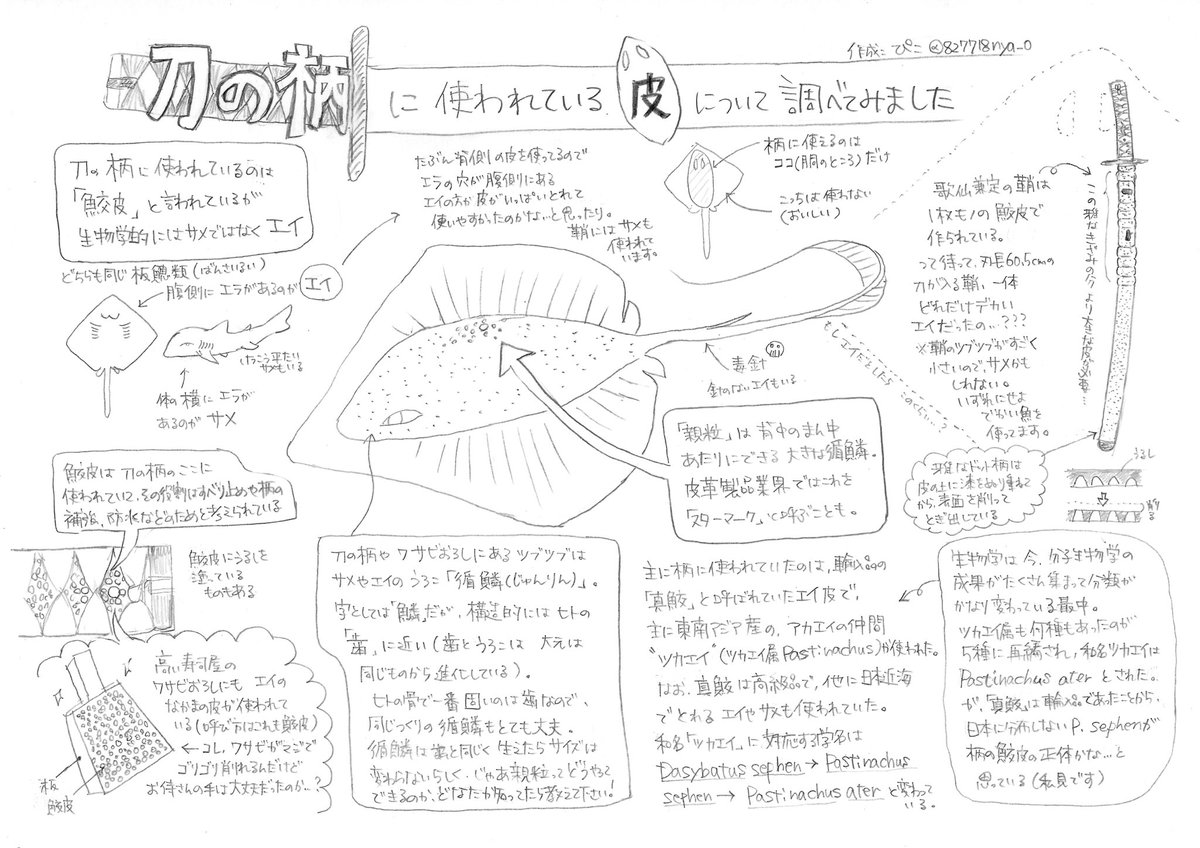 作成：ぴこ @827718nya_o
刀の柄に使われている皮について調べてみました
刀の柄に使われているのは
「鮫皮」と言われているが
生物学的にはサメではなくエイ
どちらも同じ板鰓類(ばんさいるい)
腹側にエラがあるのが エイ
けっこう平たい
サメもいる
体の横にエラが
あるのが サメ
たぶん背側の皮を使ってるので
エラの穴が腹側にある
エイの方が皮がいっぱいとれて
使いやすかったのかな…と思ったり。
鞘にはサメも
使われて
います。
柄に使えるのは
ココ(胴のところ)だけ
こっちは使わない
(おいしい)
毒針
針のないエイもいる
歌仙兼定の鞘は
1枚モノの鮫皮で
作られている。
って待って、刃長60.5cmの
刀が入る鞘、一体
どれだけデカい
エイだったの…???
※鞘のツブツブがすごく
小さいので、サメかも
しれない。
いずれにせよ
でかい魚を
使ってます。
この雅なきざみのクより大きな皮が必要…
もしエイだとしたら
このくらい…?
雅なドット柄は
皮の上に漆をぬり重ねて
から、表面を削って
とぎ出している
うるし
削る
「親粒」は背中のまん中
あたりにできる大きな循鱗。
皮革製品業界ではこれを
「スターマーク」と呼ぶことも。
鮫皮は刀の柄のここに
使われていて、その役割はすべり止めや柄の
補強、防水などのためと考えられている
鮫皮にうるしを
塗っている
ものもある
高い寿司屋の
ワサビおろしにも エイの
なかまの皮が使われて
いる(呼び方はこれも鮫皮)
←コレ、ワサビがマジで
ゴリゴリ削れるんだけど
お侍さんの手は大丈夫だったのか…?
板
鮫皮
刀の柄やワサビおろしにあるツブツブは
サメやエイのうろこ「循鱗(じゅんりん)」。
字としては「鱗」だが、構造的にはヒトの
「歯」に近い(歯とうろこは 大元は
同じものから進化している)。
ヒトの骨で一番固いのは歯なので、
同じつくりの循鱗もとても丈夫。
循鱗は歯と同じく生えたらサイズは
変わらないらしく、じゃあ親粒ってどうやって
できるのか、どなたか知ってたら教えて下さい!
主に柄に使われていたのは、輸入品の
「真鮫」と呼ばれていたエイ皮で、
主に東南アジア産の、アカエイの仲間
"ツカエイ"(ツカエイ属Pastinachus)が使われた。
なお、真鮫は高級品で、他に日本近海
でとれるエイやサメも使われていた。
和名「ツカエイ」に対応する学名は
Dasybatus sephen→Pastinachus
sephen→Pastinachus aterと変わって
いる。
生物学は今、分子生物学の
成果がたくさん集まって分類が
かなり変わっている最中。
ツカエイ属も何種もあったのが
5種に再編され、和名ツカエイは
Pastinachus aterとされた。
が、「真鮫」は輸入品であることから、
日本に分布しないP. sephenが
柄の鮫皮の正体かな…と
思っている(私見です)